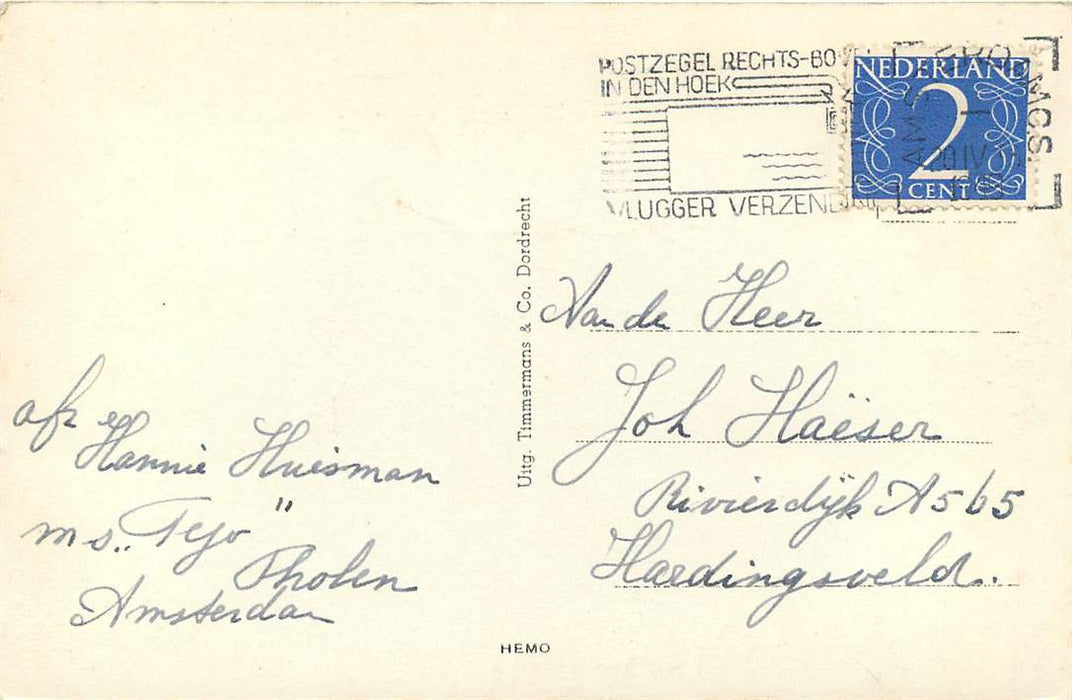 POSTZEGEL RECHTS-BO
IN DEN HOEK
VLUGGER VERZEND
NEDERLAND
2
CENT
20 IV
Uitg. Timmermans & Co. Dordrecht
Aan de Heer
Joh Haëser
Rivierdijk A565
Hardingsveld.
afz
Hannie Huisman
m s. „Tejo"
Tholen
Amsterdam
HEMO